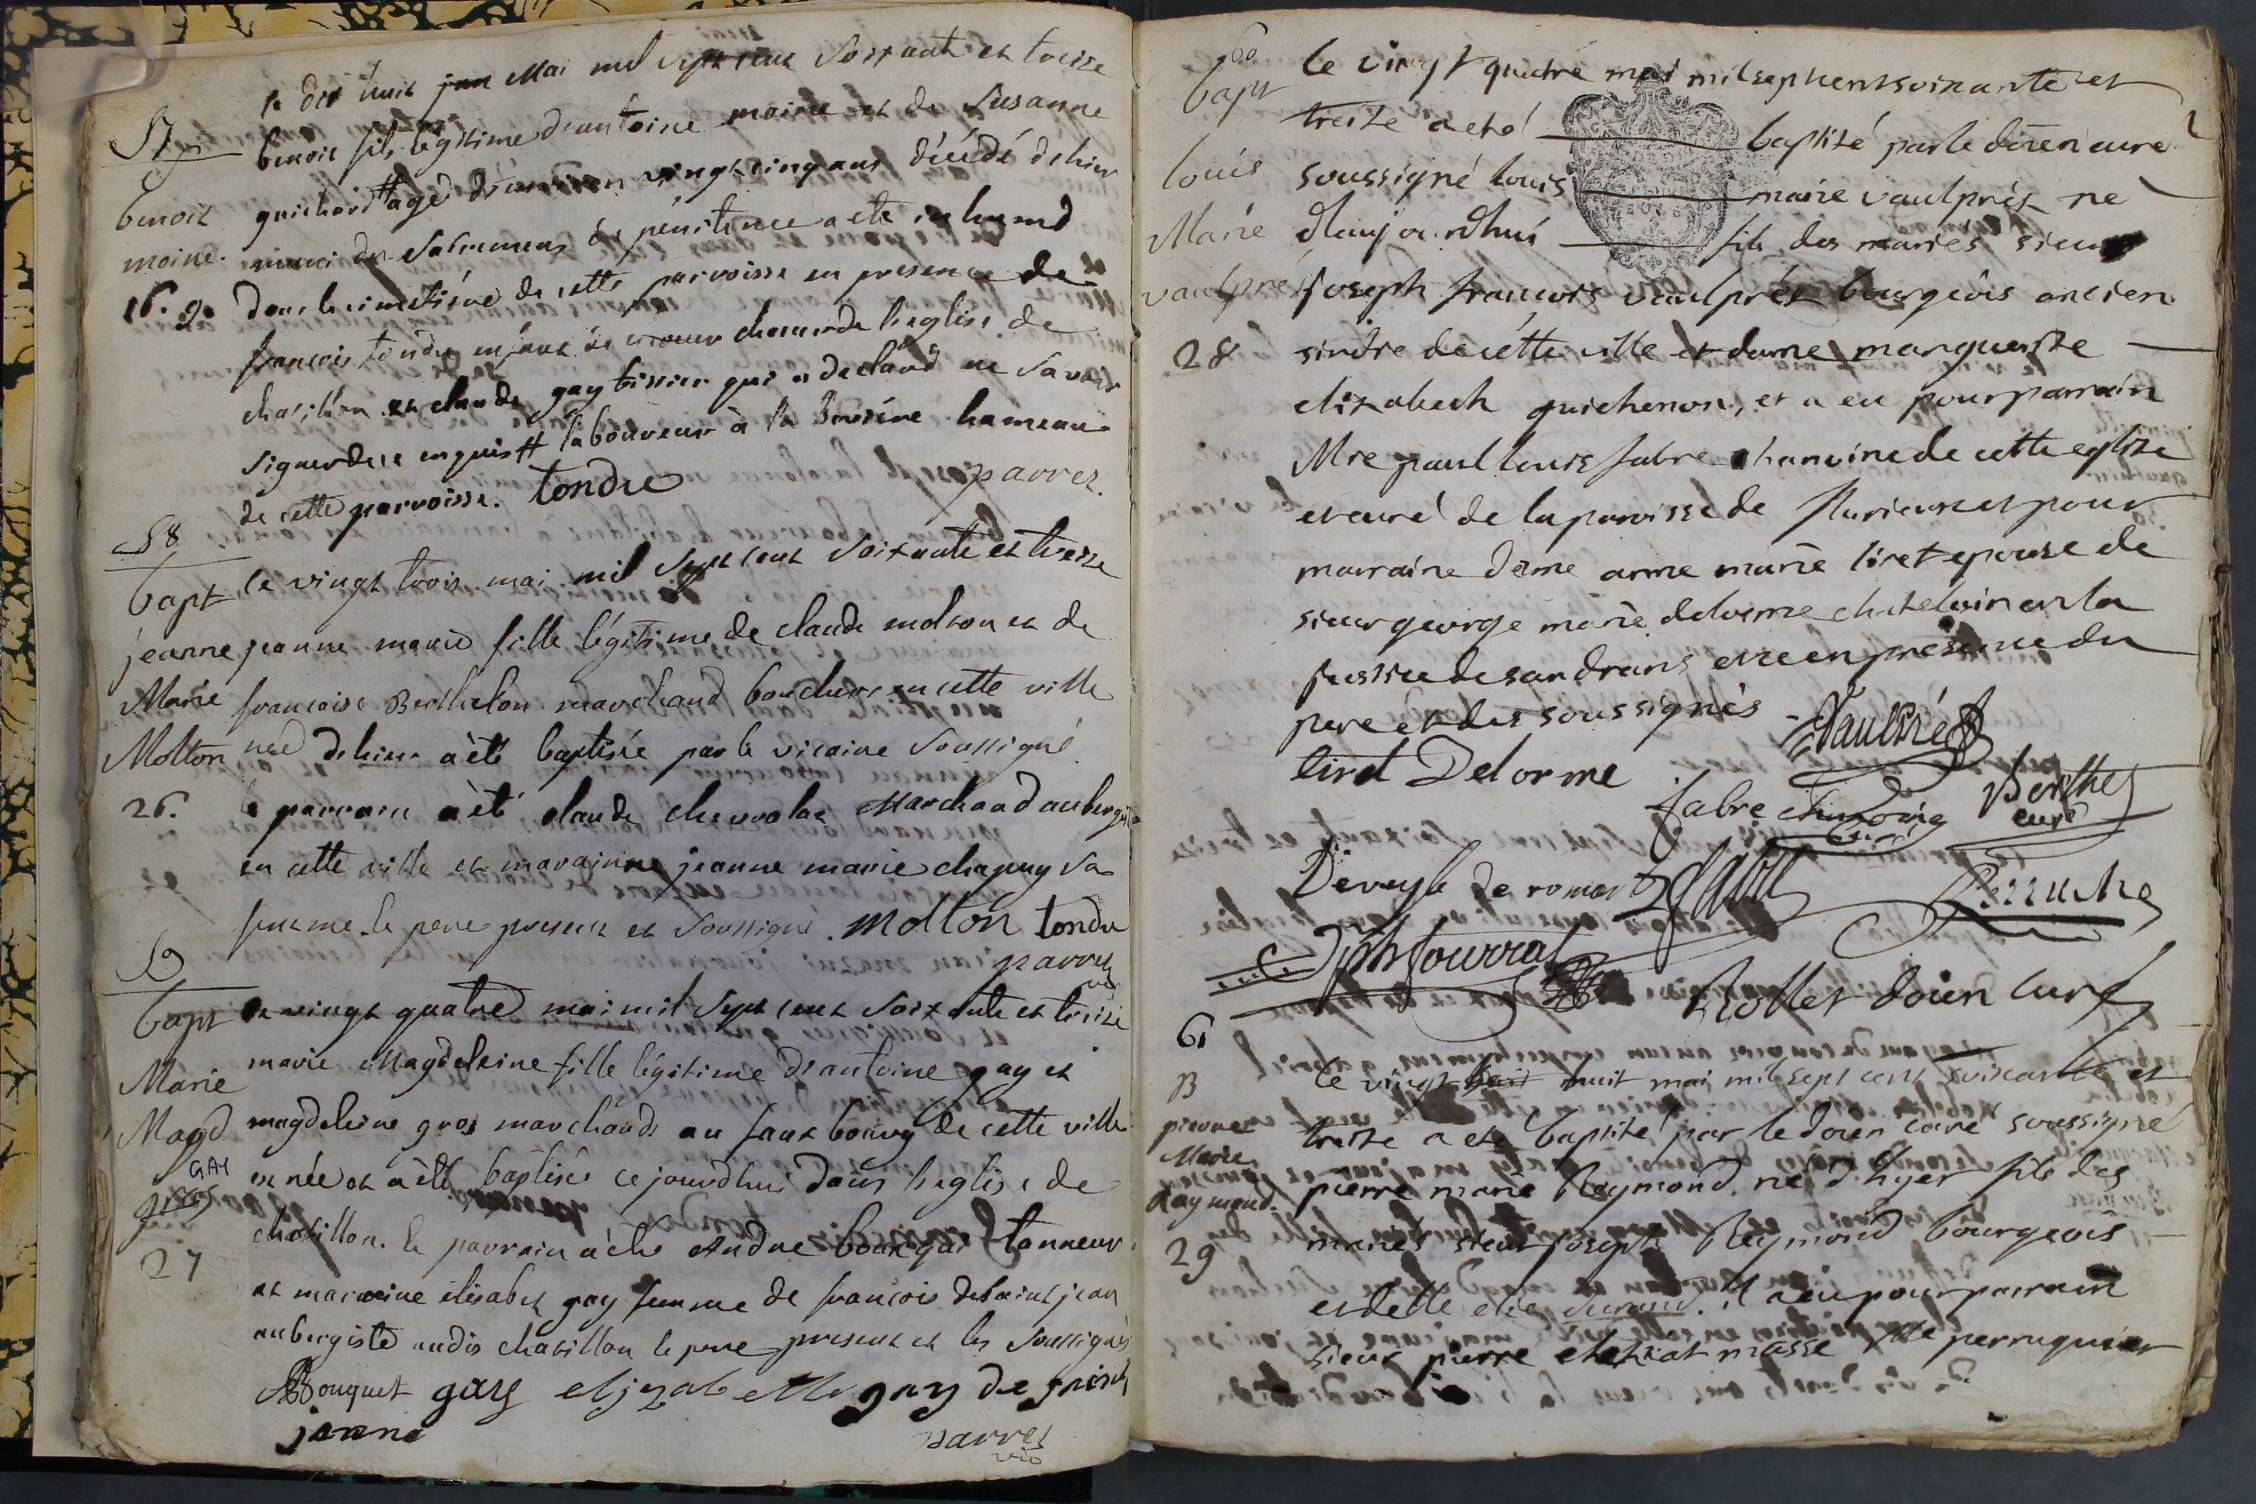 le dix huit juin Mai mil sept cent soixante et treize
57
benoit fils légitime d'antoine moine et de Susanne
guichard # agé d'environ vingt cinq ans décédé d'hier
benoit
moine.
muni du Sacrement de pénitence a eté inhumé
16. 9.
dans le cimetiére de cette parroisse en presence de
francois tondu enfant de choeur de l'eglise de
chatillon et claude gay tissier qui a declaré ne savoir
signer de ce enquis # laboureur à la hameau
de cette parroisse. tondu
parrez.
58
bapt
le vingt trois mai mil sept cent soixante et treize
jeanne
jeanne marie fille légitime de claude molton et de
Marie
francoise Berthelon marchand boucher en cette ville
Molton
née d'hier a été baptisée par le vicaire soussigné
26.
le parrain a été claude chevrolat Marchand aubergiste
en cette ville et marainne jeanne marie chapuy sa
femme. le pere present et soussigné. molton tondu
parrez
vic
59
bapt
le vingt quatre mai mil sept cent soixante et treize
Marie
marie Magdeleine fille légitime d'antoine gay et
Magd
magdeleine gros marchands au fauxbourg de cette ville
GAY
gros
est née et a été baptisée ce jourd'hui dans l'eglise de
27
chatillon. le parrain a été andré bouquai tanneur
et maraine elisabet gay femme de francois desaint jean
aubergiste audis chatillon le pere present et les soussignés
Bouquet gay elizabeth gay de saint
jeanne
parrez
vic
60
bapt
le vingt quatre mai mil sept cent soixante et
treize a eté baptisé par le doïen curé
louis
soussigné louis marie vaulprés né
Marie
d'aujourdhui fils des mariés sieur
vaulpré
joseph francois vaulprés bourgeois ancien
28
sindic de cette ville et dame marguerite
elizabeth guichenon, et a eu pour parrain
Mre paul louis fabre chanoine de cette eglize
et curé de la paroisse de flurieux et pour
marraine dame anne marie liret epouse de
sieur george marie delorme chatelain en la
justice de sandrans et ce en présence du
pere et des soussignés Vaulpré
liret Delorme
fabre chanoine
curé
Berthet
curé
Deveyle de romans fabre Perruche
jph fourrat
Rollet doïen curé
61
B
le vingt huit huit mai mil sept cent soixante et
pierre
Marie
Raymond.
treize a eté baptisé par le doïen curé soussigné
pierre marie Reymond né d'hyer fils des
29
mariés sieur joseph Reymond bourgeois
et delle durand. il a eu pour parrain
sieur pierre masse Me perruquier